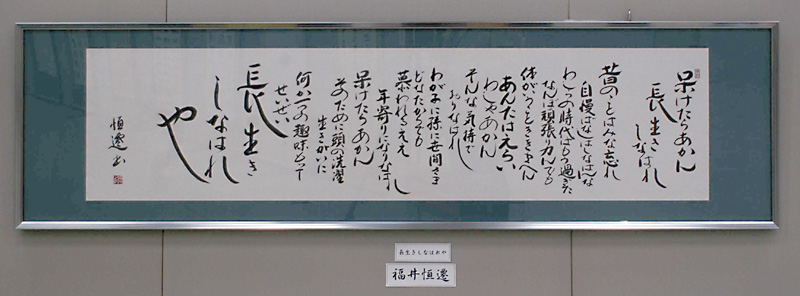 呆けたらあかん
長生き
しなはれ
昔のことはみな忘れ
自慢ばなしはしなはんな
わしらの時代はもう過ぎた
なんぼ頑張り力んでも
体がいうことをきかへん
あんたはえらい
わしゃあかん
そんな気持で
おりなはれ
わが子に孫に世間さま
どなたからでも
慕われるええ
年寄りになりなはれ
呆けたらあかん
そのために頭の洗濯
生きがいに
何か一つの趣味もって
せいぜい
長生き
しなはれ
や
恒遷書
長生きしなはれや
福井恒遷